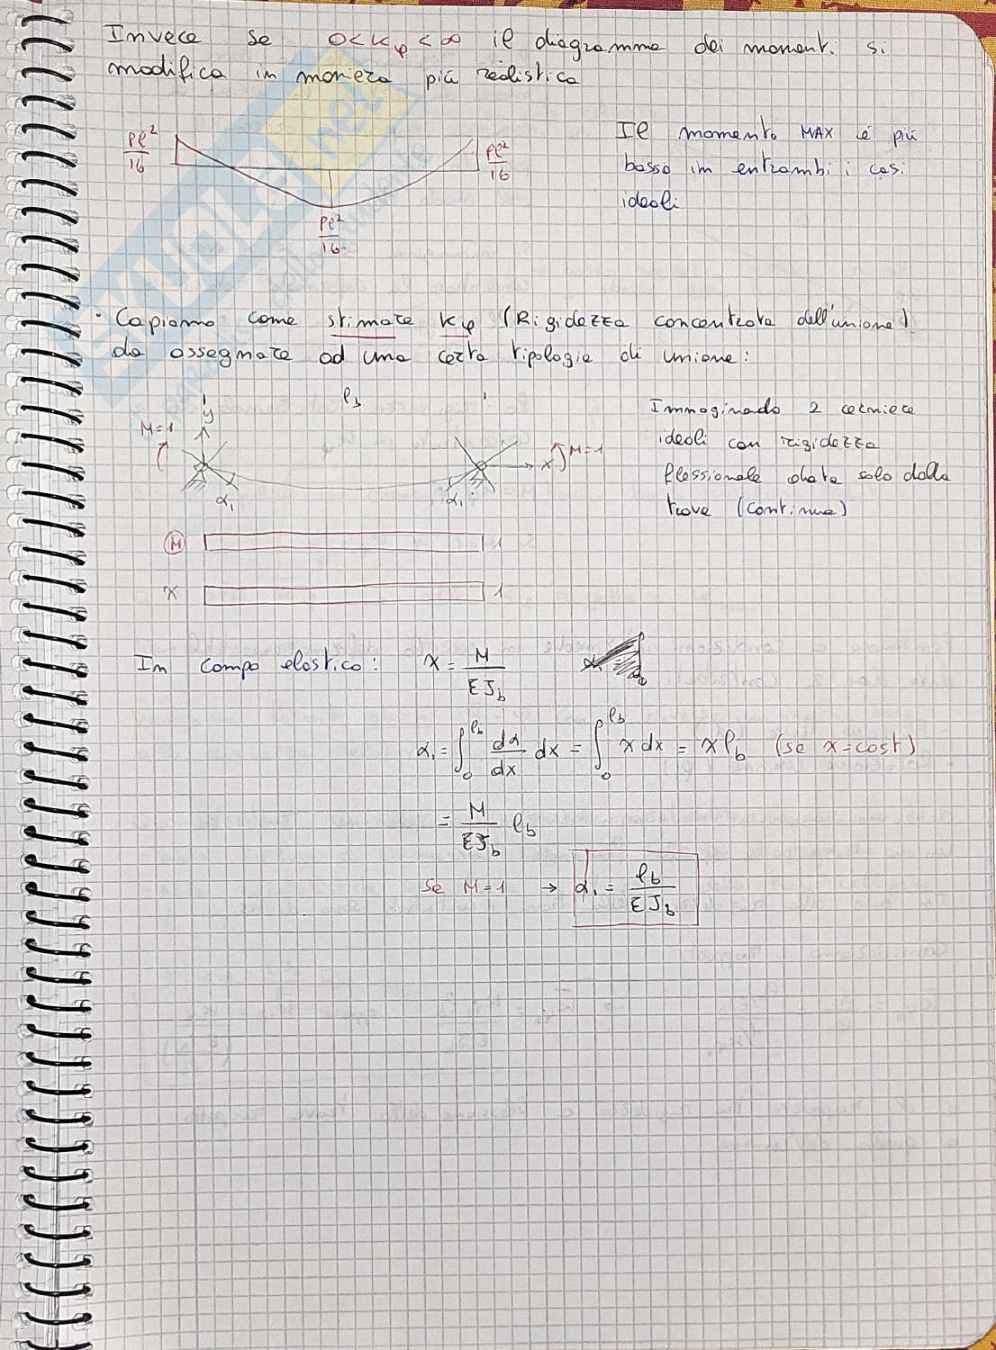 Invece se 0<Kφ<∞ il diagramma dei momenti si
modifica in maniera più realistica
Pℓ²/16
Pℓ²/16
Pℓ²/16
Il momento MAX è più
basso in entrambi i casi
ideali
• Capiamo come stimare Kφ (Rigidezza concentrata dell'unione)
da assegnare ad una certa tipologia di unione:
ℓb
y
M=1
x
M=1
α₁
α₁
Immaginado 2 cerniere
ideali con rigidezza
flessionale data solo dalla
trave (continua)
M
1
χ
1
In campo elastico: χ = M/EJb
α₁ = ∫₀^ℓb dα/dx dx = ∫₀^ℓb χ dx = χ ℓb (se χ=cost)
= M/EJb ℓb
Se M=1 → α₁ = ℓb/EJb
SKUOLA.net